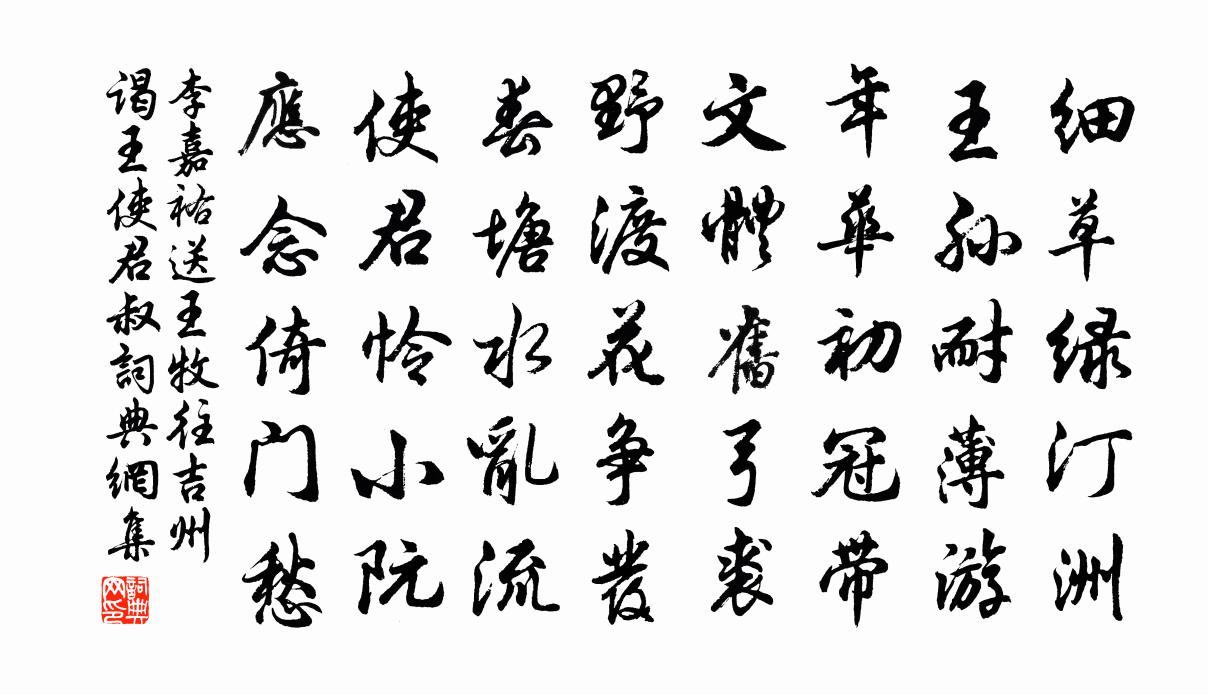 细草绿汀洲
王孙耐薄游
年華初冠带
文體舊弓裘
野渡花争發
春塘水亂流
使君怜小阮
應念倚门愁
李嘉祐送王牧往吉州
谒王使君叔詞典網集
詞典网印